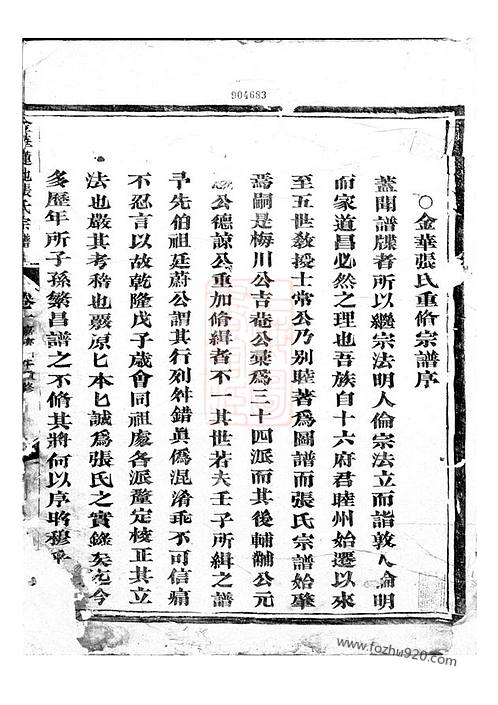 904683
○金華張氏重脩宗譜序
蓋聞譜牒者所以繼宗法明人倫宗法立而譜敦人倫明
而家道昌必然之理也吾族自十六府君睦州始遷以來
至五世敎授士常公乃別睦著爲圖譜而張氏宗譜始肇
焉嗣是梅川公古菴公彙爲三十四派而其後輔黼公元
公德諒公重加脩緝者不一其世若夫壬子所緝之譜
予先伯祖廷蔚公謂其行列舛錯眞僞混淆乖不可信痛
不忍言以故乾隆戊子歲會同祖處各派釐定校正其立
法也嚴其考稽也覈原匕本匕誠爲張氏之實錄矣迄今
多歷年所子孫繁昌譜之不脩其將何以序昭穆
金華蓮池張氏宗譜
卷
www.fozhu920.com